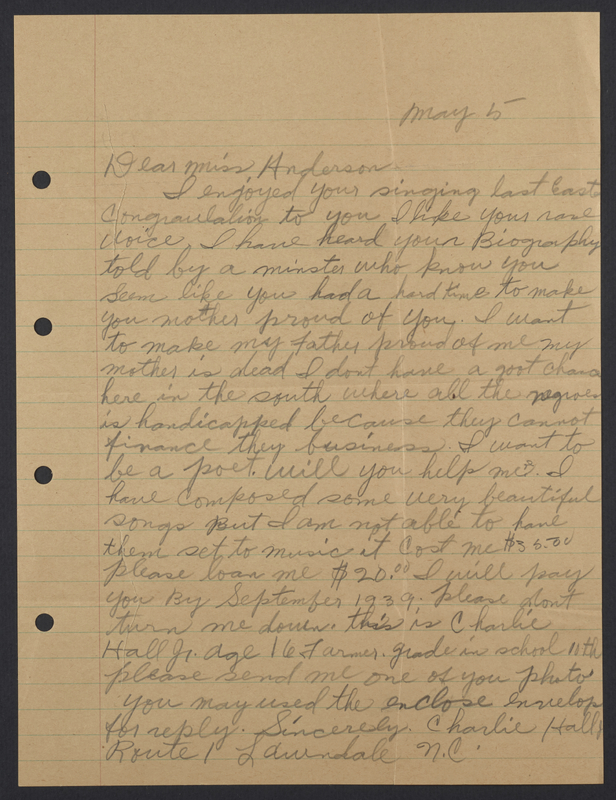 May 5
Dear Miss Anderson
I enjoyed your singing last East
Congraulation to you I like your rase
voice, I have heard your Biography
told by a minster who know you
seem like you had a hard time to make
you mother proud of you. I want
to make my father proud of me my
mother is dead I dont have a goot chance
here in the south where all the negroes
is handicapped because they cannot
finance they business. I want to
be a poet. will you help me? I
have composed some very beautiful
songs But I am not able to have
them set to music it cost me $35.00
please loan me $20.00 I will pay
you By September 1939. please dont
turn me down. this is Charlie
Hall Jr. age 16 Farmer. grade in school 11th
please send me one of you photo
you may used the enclose envelop
for reply. Sincerely. Charlie Hall
Route 1 Lawndale N.C.